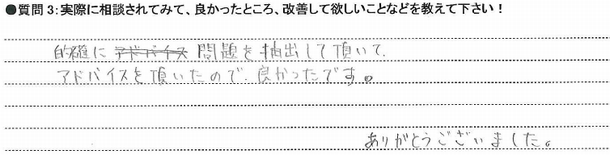 ●質問3:実際に相談されてみて、良かったところ、改善して欲しいことなどを教えて下さい！
的確に アドバイス 問題を抽出して頂いて、
アドバイスを頂いたので、良かったです。
ありがとうございました。